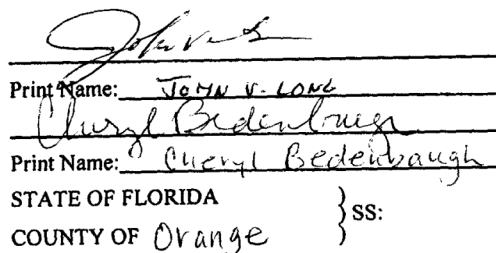 John V. L
Print Name: JOHN V. LONG
Cheryl Bedenbaugh
Print Name: Cheryl Bedenbaugh
STATE OF FLORIDA
} SS:
COUNTY OF Orange